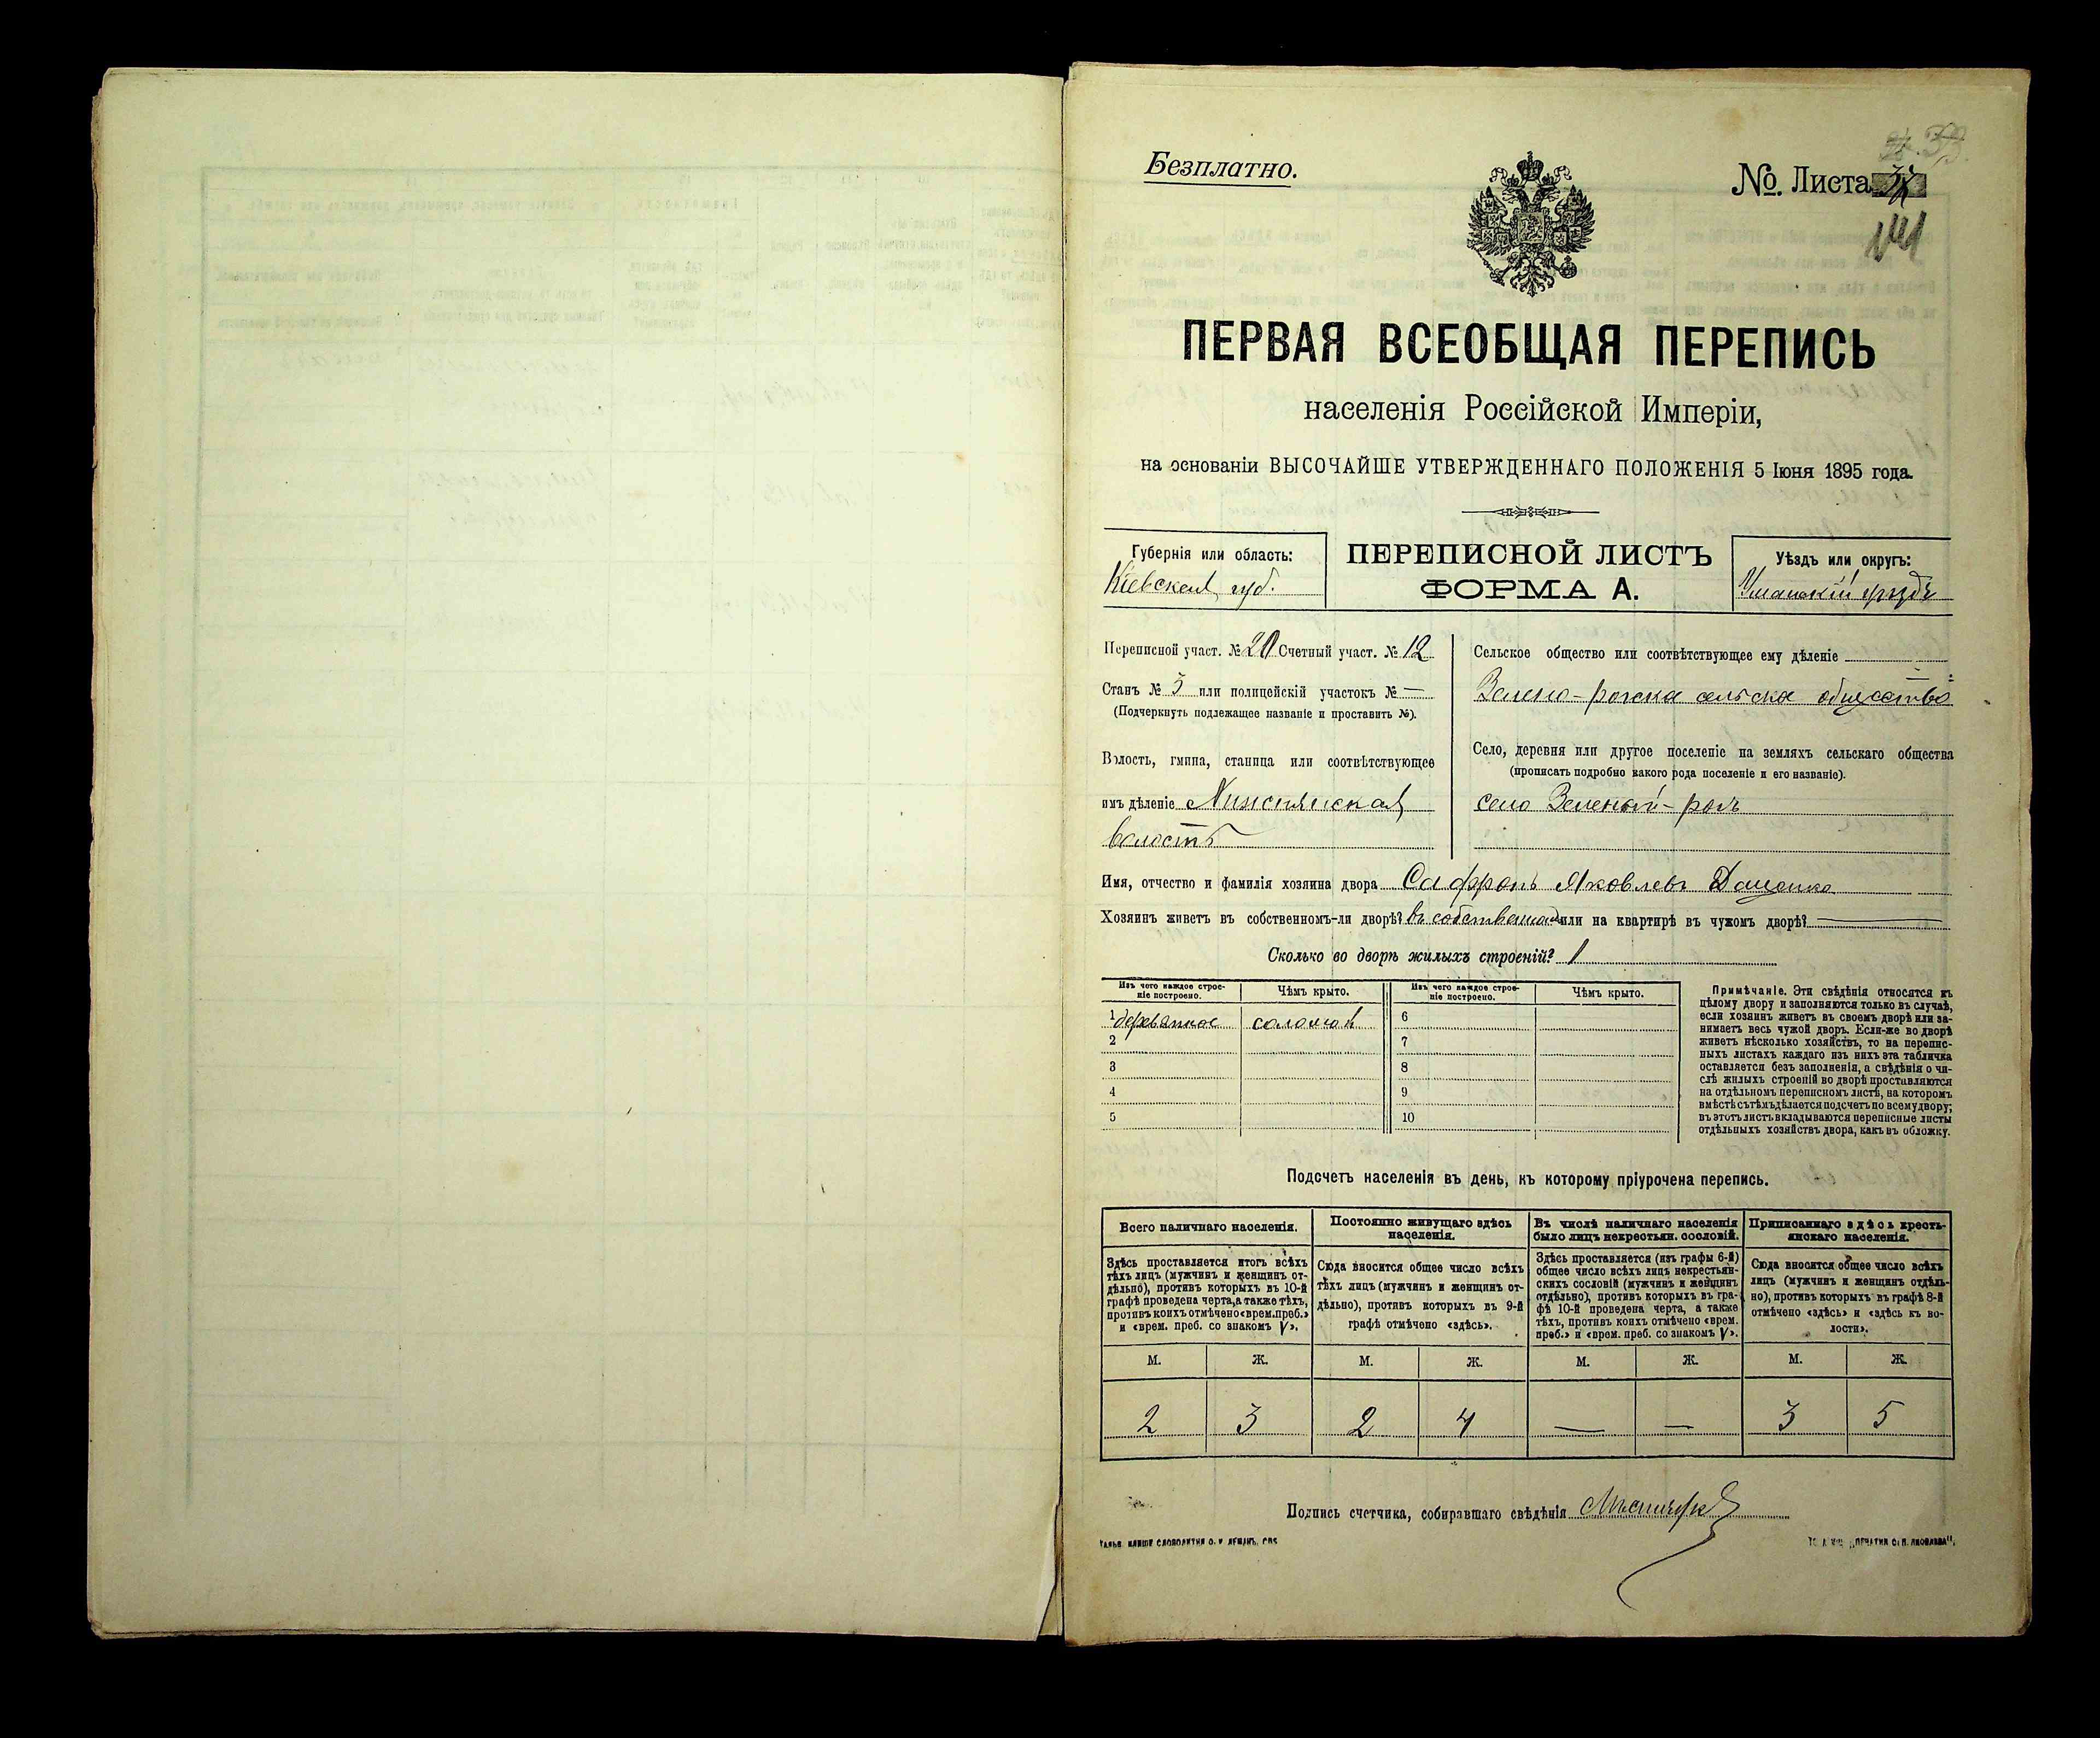 Безплатно.
№ Листа
141
ПЕРВАЯ ВСЕОБЩАЯ ПЕРЕПИСЬ
населенія Россійской Имперіи,
на основаніи ВЫСОЧАЙШЕ УТВЕРЖДЕННАГО ПОЛОЖЕНІЯ 5 Іюня 1895 года.
Губернія или область:
Кіевская губ.
ПЕРЕПИСНОЙ ЛИСТЪ
ФОРМА А.
Уѣздъ или округъ:
Уманскій уѣздъ
Переписной участ. № 20 Счетный участ. № 12
Станъ № 3 или полицейскій участокъ № —
(Подчеркнуть подлежащее названіе и проставить №).
Волость, гмина, станица или соотвѣтствующее
имъ дѣленіе
волость
Сельское общество или соотвѣтствующее ему дѣленіе
Зелено-рожска сельска общество
Село, деревня или другое поселеніе на земляхъ сельскаго общества
(прописать подробно какого рода поселеніе и его названіе).
село Зеленый-рогъ
Имя, отчество и фамилія хозяина двора Сафронъ Яковлевъ Даценко
Хозяинъ живетъ въ собственномъ-ли дворѣ? въ собственномъ или на квартирѣ въ чужомъ дворѣ? —
Сколько во дворѣ жилыхъ строеній? 1
Изъ чего каждое строеніе построено. Чѣмъ крыто. Изъ чего каждое строеніе построено. Чѣмъ крыто.
1 деревянное соломой 6
2 7
3 8
4 9
5 10
Примѣчаніе. Эти свѣдѣнія относятся къ
цѣлому двору и заполняются только въ случаѣ,
если хозяинъ живетъ въ своемъ дворѣ или за-
нимаетъ весь чужой дворъ. Если-же во дворѣ
живетъ нѣсколько хозяйствъ, то на перепис-
ныхъ листахъ каждаго изъ нихъ эта табличка
оставляется безъ заполненія, а свѣдѣнія о чи-
слѣ жилыхъ строеній во дворѣ проставляются
на отдѣльномъ переписномъ листѣ, на которомъ
вмѣстѣ съ тѣмъ дѣлается подсчетъ по всему двору;
въ этотъ листъ вкладываются переписные листы
отдѣльныхъ хозяйствъ двора, какъ въ обложку.
Подсчетъ населенія въ день, къ которому пріурочена перепись.
Всего наличнаго населенія.
Здѣсь проставляется итогъ всѣхъ
тѣхъ лицъ (мужчинъ и женщинъ от-
дѣльно), противъ которыхъ въ 10-й
графѣ проведена черта, а также тѣхъ,
противъ коихъ отмѣчено «врем. преб.»
и «врем. преб. со знакомъ V».
Постоянно живущаго здѣсь
населенія.
Сюда вносится общее число всѣхъ
тѣхъ лицъ (мужчинъ и женщинъ от-
дѣльно), противъ которыхъ въ 9-й
графѣ отмѣчено «здѣсь».
Въ числѣ наличнаго населенія
было лицъ некрестьян. сословій.
Здѣсь проставляется (изъ графы 6-й)
общее число всѣхъ лицъ некрестьян-
скихъ сословій (мужчинъ и женщинъ
отдѣльно), противъ которыхъ въ гра-
фѣ 10-й проведена черта, а также
тѣхъ, противъ коихъ отмѣчено «врем.
преб.» и «врем. преб. со знакомъ V».
Приписаннаго здѣсь кресть-
янскаго населенія.
Сюда вносится общее число всѣхъ
лицъ (мужчинъ и женщинъ отдѣль-
но), противъ которыхъ въ графѣ 8-й
отмѣчено «здѣсь» и «здѣсь къ во-
лости».
М. Ж. М. Ж. М. Ж. М. Ж.
2 3 2 4 — — 3 5
Подпись счетчика, собиравшаго свѣдѣнія